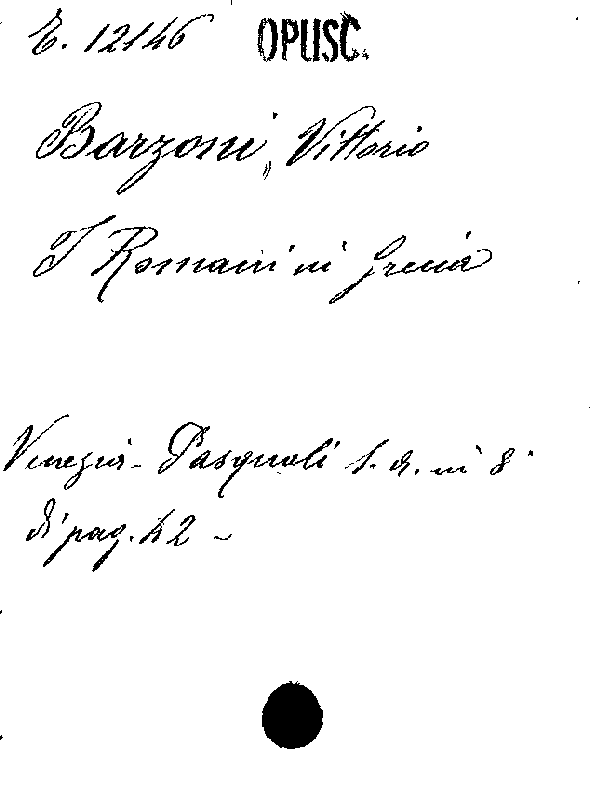 E. 12146 OPUSC.
Barzoni, Vittorio
I Romani in Grecia
Venezia - Pasquali s. a. in 8°
di pag. 42 -